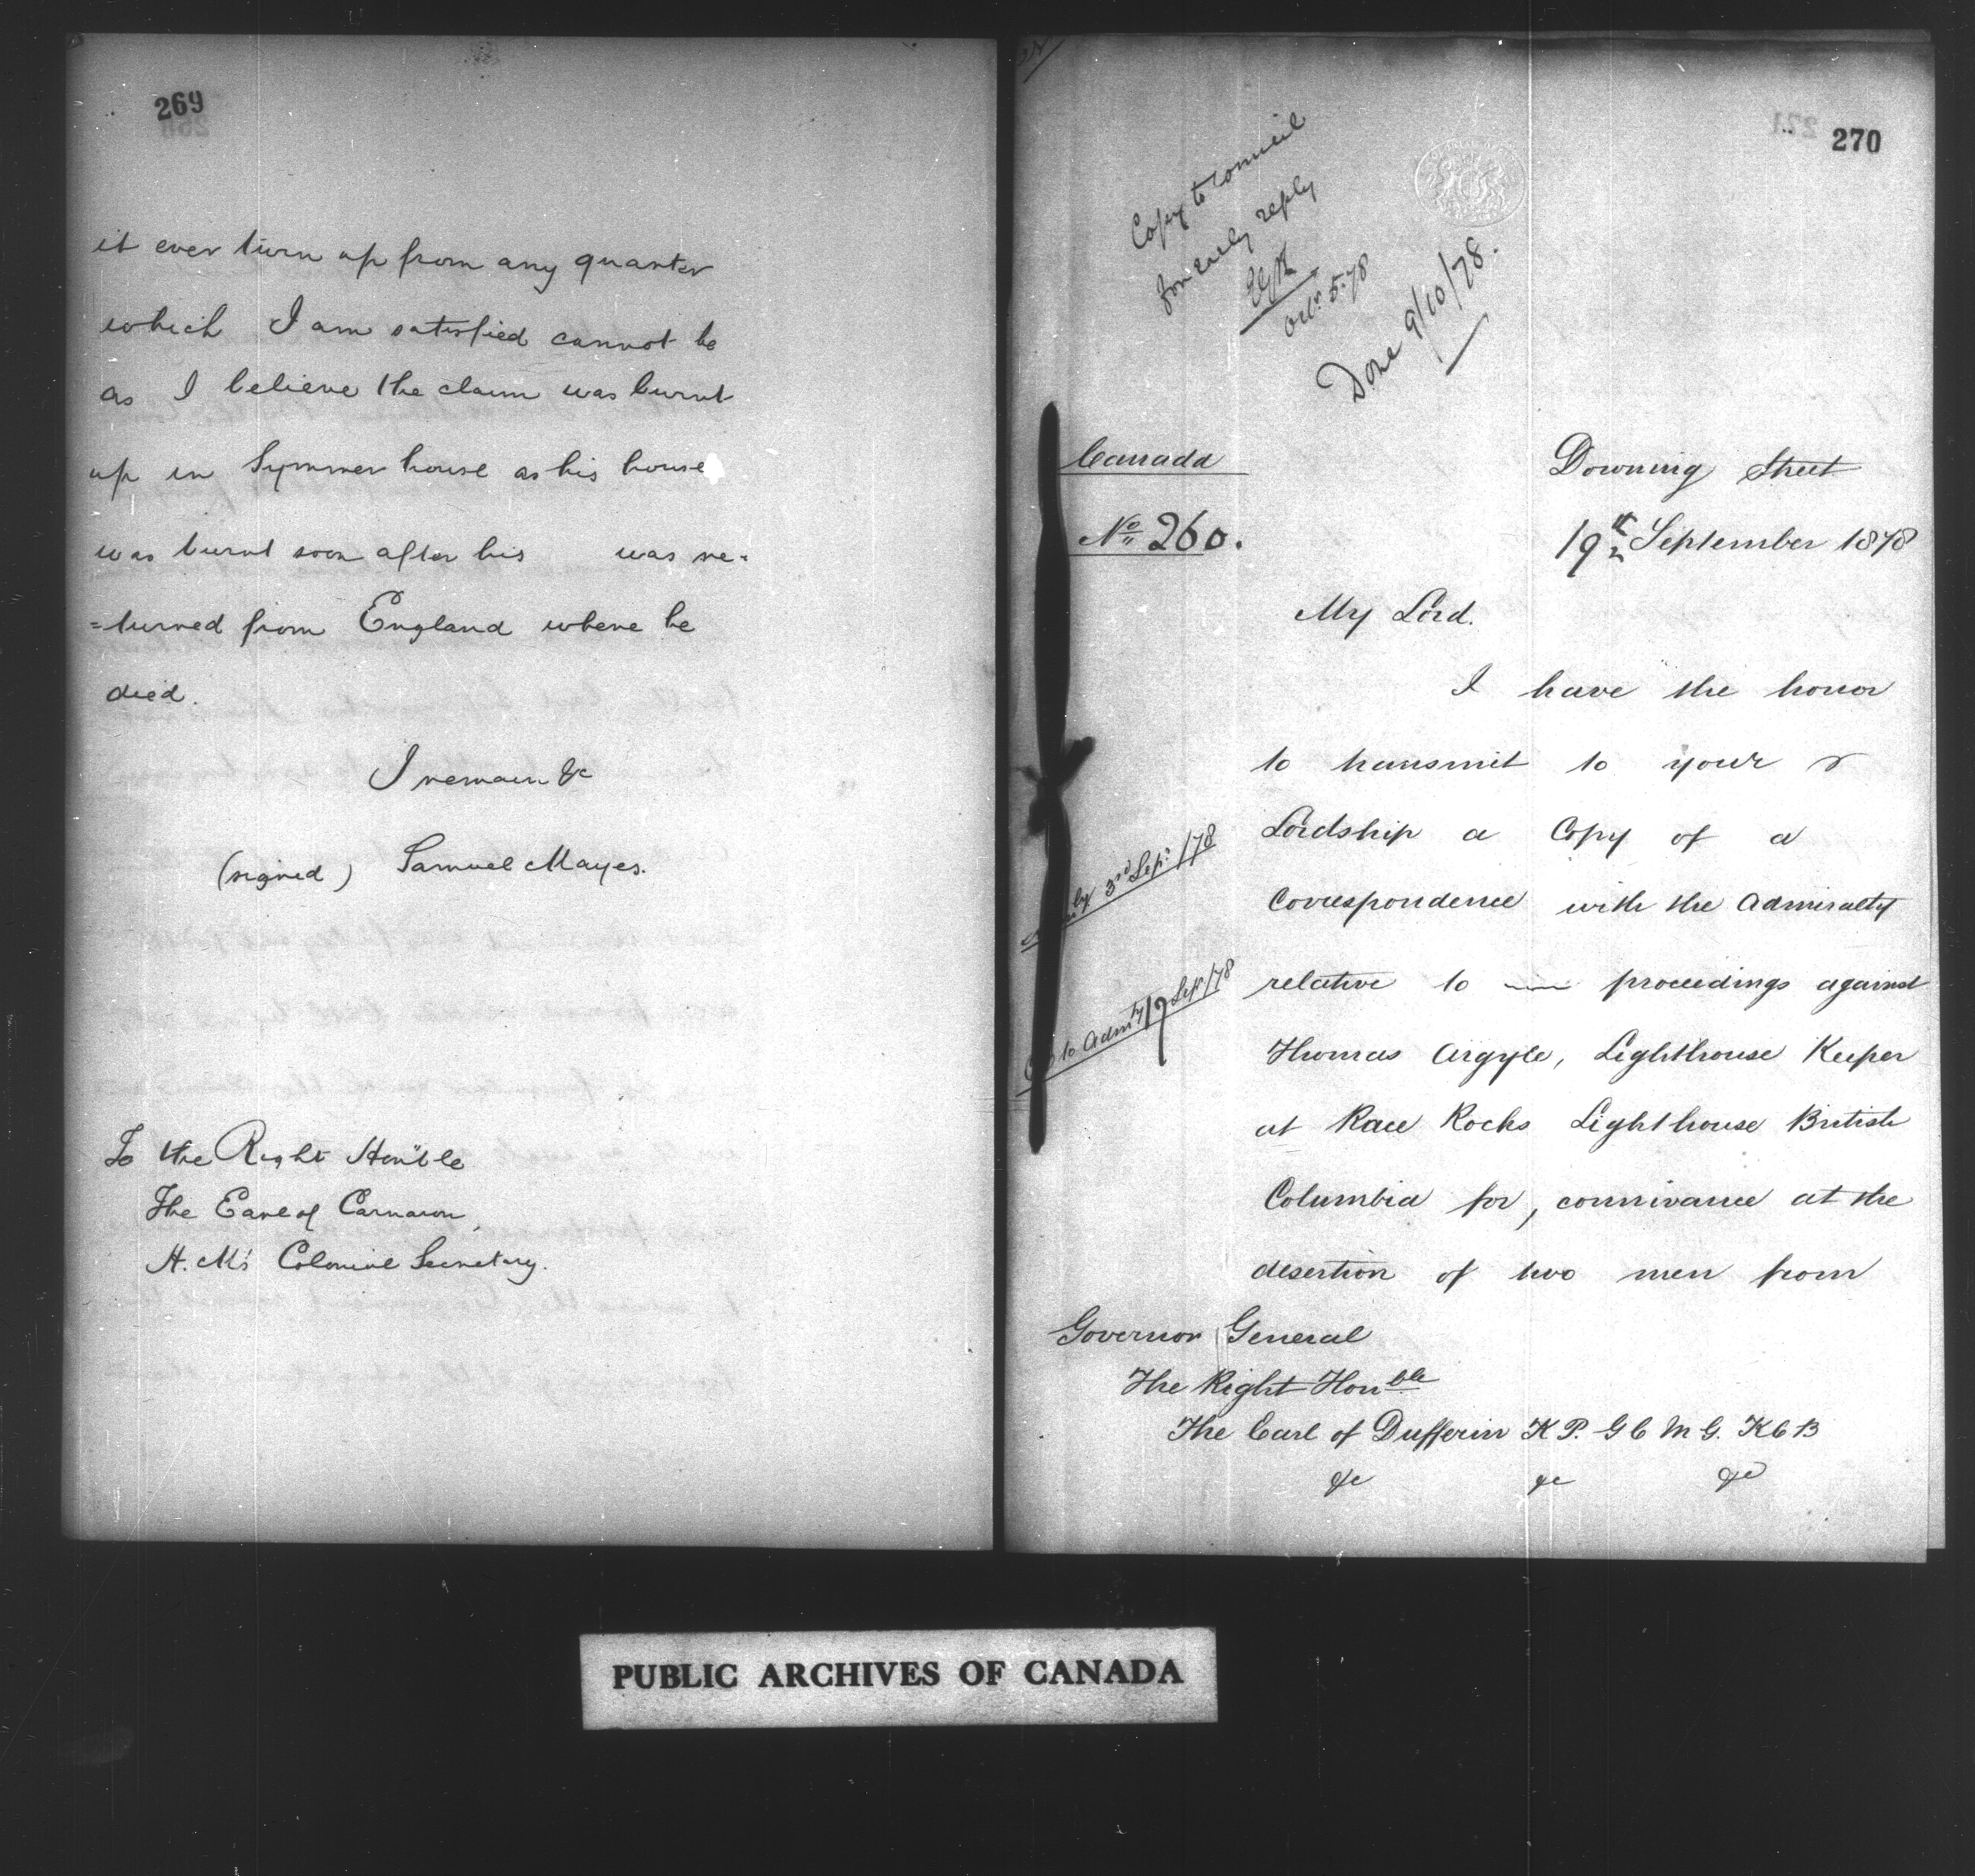 269
it ever turn up from any quarter
which I am satisfied cannot be
as I believe the claim was burnt
up in Symmer house as his house
was burnt soon after his was re-
=turned from England where he
died.
I remain &c
(signed) Samuel Mayes.
To the Right Hon'ble
The Earl of Carnarvon,
H. M's Colonial Secretary.
270
Copy to Council
for early reply
Octr. 5. 78
Done 9/10/78.
Canada
No 260.
Downing Street
19th September 1878
My Lord.
I have the honor
to transmit to your
Lordship a Copy of a
Correspondence with the Admiralty
relative to proceedings against
Thomas Argyle, Lighthouse Keeper
at Race Rocks Lighthouse British
Columbia for, connivance at the
desertion of two men from
3rd Sepr /78
to Admty 19 Sep /78
Governor General
The Right Honble
The Earl of Dufferin K P. G C M G. K C B
&c &c &c
PUBLIC ARCHIVES OF CANADA